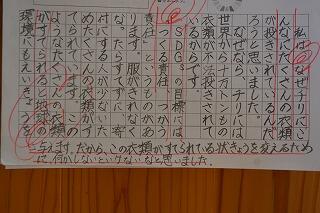 私は、なぜチリにこ
んなにたくさんの衣類
が投きされているんだ
ろうと思いました。
なぜなら、チリには
世界から トンもの
衣類が不法投きされて
いるからです。
SDGsの目標には
「つくる責任
責任」というものがあ
ります。服がきれなく
なったらすてずに、寄
付にする人が少ないた
めたくさんの衣類がす
てられています。この
ようなたくさんの衣類
がすてられると地球の
環境にもえいきょうを
与えます。だから、この衣類がすてられている状きょうを変えるため
に、何かしないといけないなと思いました。